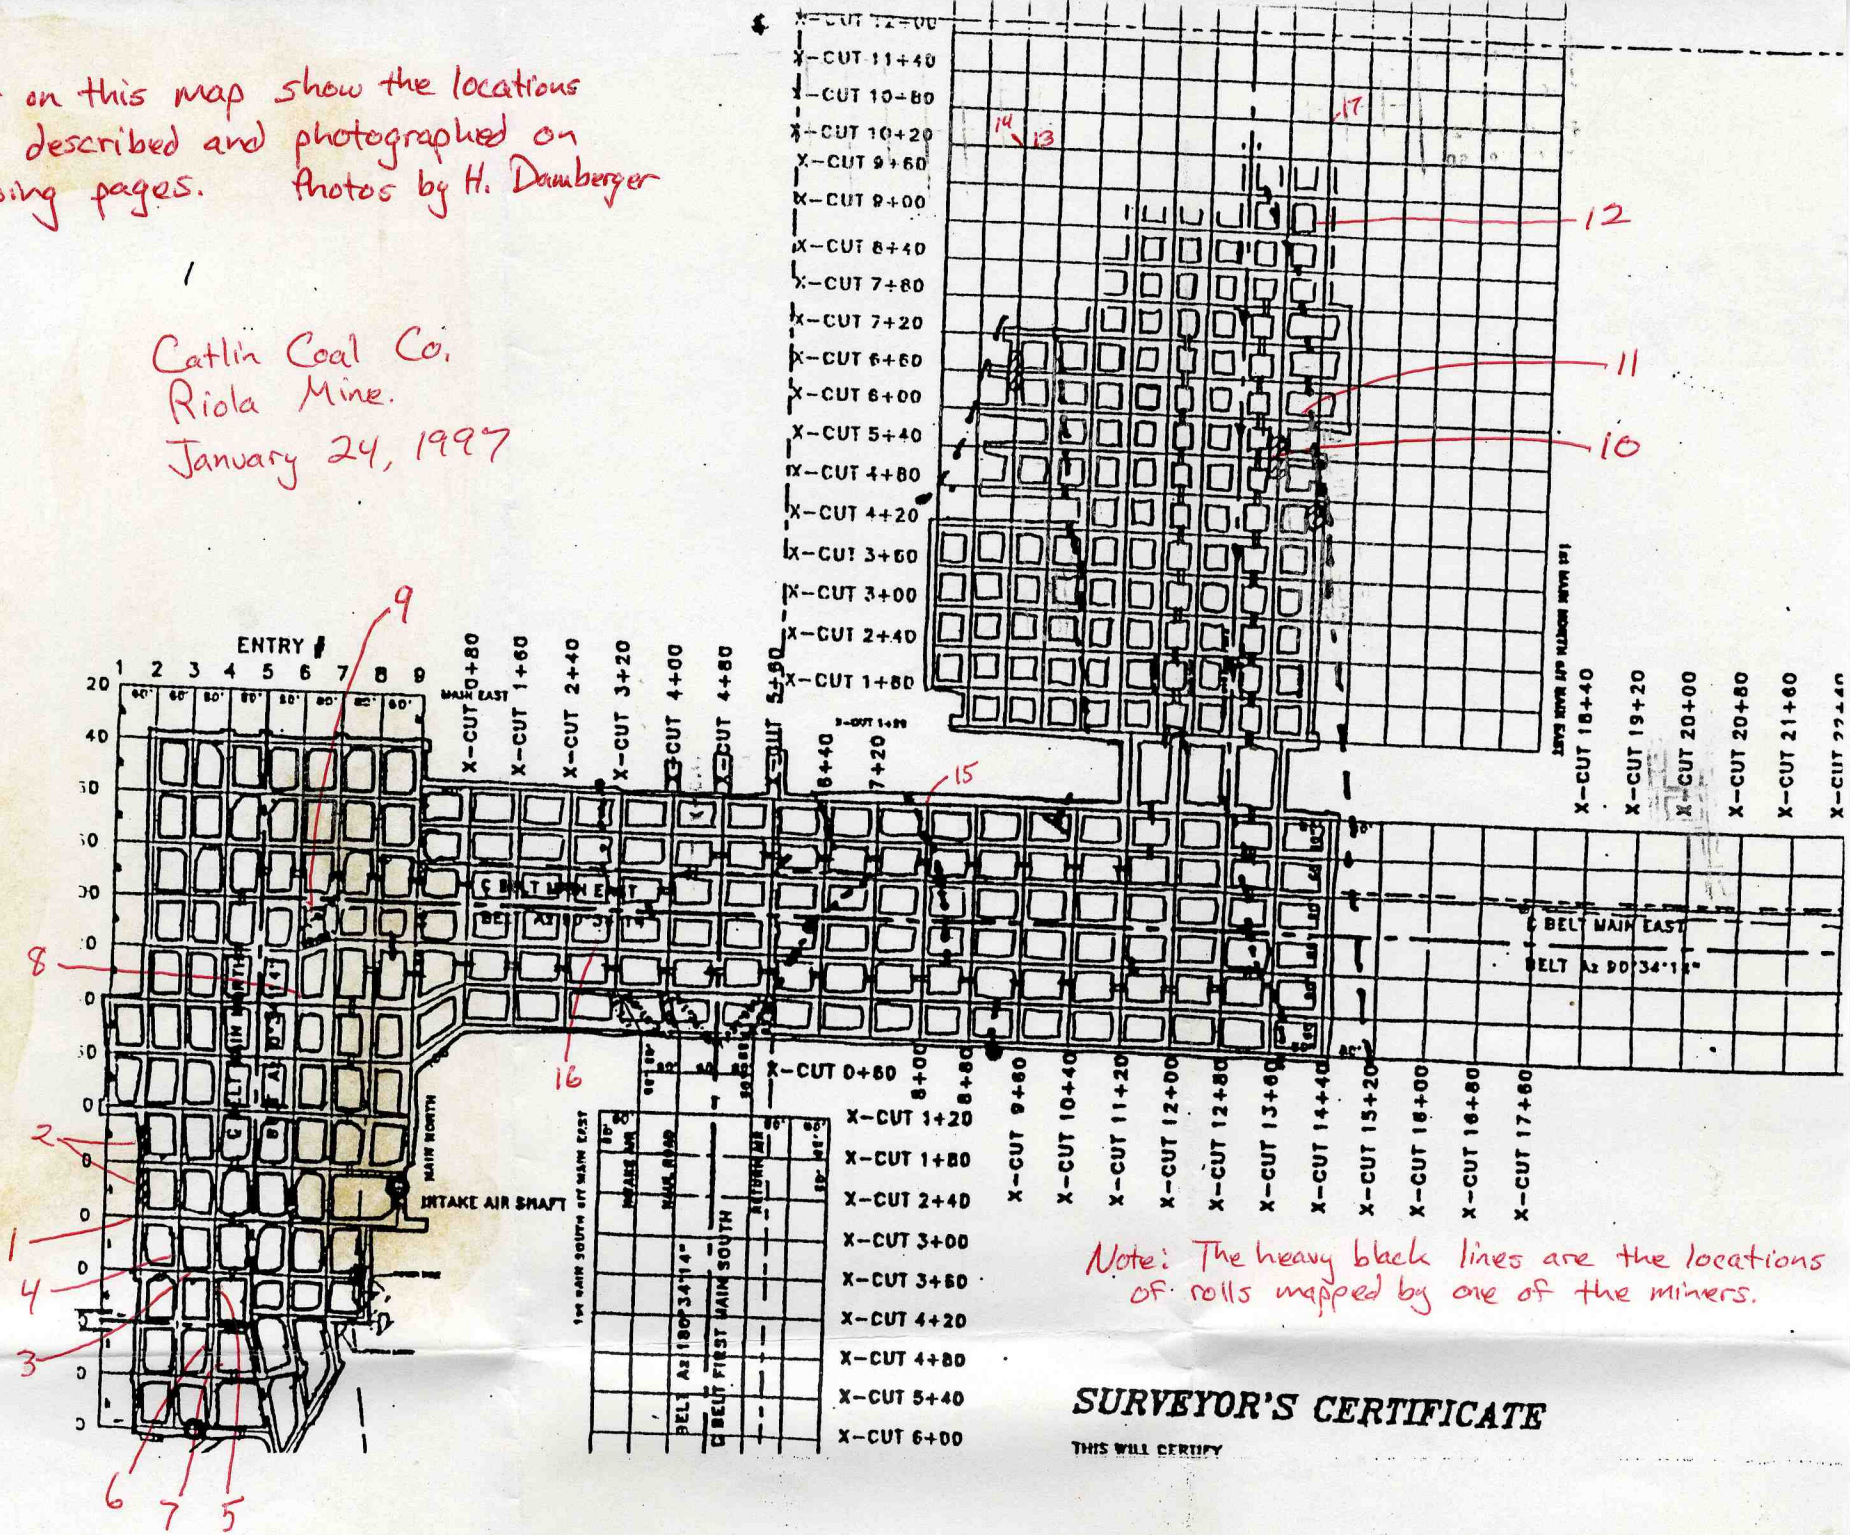 on this map show the locations
described and photographed on
pages. Photos by H. Damberger
Catlin Coal Co.
Riola Mine.
January 24, 1997
X-CUT 12+00
X-CUT 11+40
X-CUT 10+80
X-CUT 10+20
X-CUT 9+60
X-CUT 9+00
X-CUT 8+40
X-CUT 7+80
X-CUT 7+20
X-CUT 6+60
X-CUT 6+00
X-CUT 5+40
X-CUT 4+80
X-CUT 4+20
X-CUT 3+60
X-CUT 3+00
X-CUT 2+40
X-CUT 1+80
14
13
17
12
11
10
1st MAIN NORTH off MAIN EAST
9
ENTRY #
1 2 3 4 5 6 7 8 9
20
40
MAIN EAST
X-CUT 0+80
X-CUT 1+60
X-CUT 2+40
X-CUT 3+20
X-CUT 4+00
X-CUT 4+80
X-CUT 5+60
6+40
7+20
15
X-CUT 18+40
X-CUT 19+20
X-CUT 20+00
X-CUT 20+80
X-CUT 21+60
X-CUT 22+40
C BELT MAIN EAST
BELT Az 90°34'14"
C BELT MAIN EAST
BELT Az 90°34'14"
C BELT MAIN NORTH
8
16
2
1
4
3
6
7
5
MAIN NORTH
INTAKE AIR SHAFT
X-CUT 0+60
X-CUT 1+20
X-CUT 1+80
X-CUT 2+40
X-CUT 3+00
X-CUT 3+60
X-CUT 4+20
X-CUT 4+80
X-CUT 5+40
X-CUT 6+00
8+00
8+80
X-CUT 9+60
X-CUT 10+40
X-CUT 11+20
X-CUT 12+00
X-CUT 12+80
X-CUT 13+60
X-CUT 14+40
X-CUT 15+20
X-CUT 16+00
X-CUT 16+80
X-CUT 17+60
1st MAIN SOUTH off MAIN EAST
INTAKE AIR
MAIN ROAD
RETURN AIR
BELT Az 180°34'14"
C BELT FIRST MAIN SOUTH
Note: The heavy black lines are the locations
of rolls mapped by one of the miners.
SURVEYOR'S CERTIFICATE
THIS WILL CERTIFY